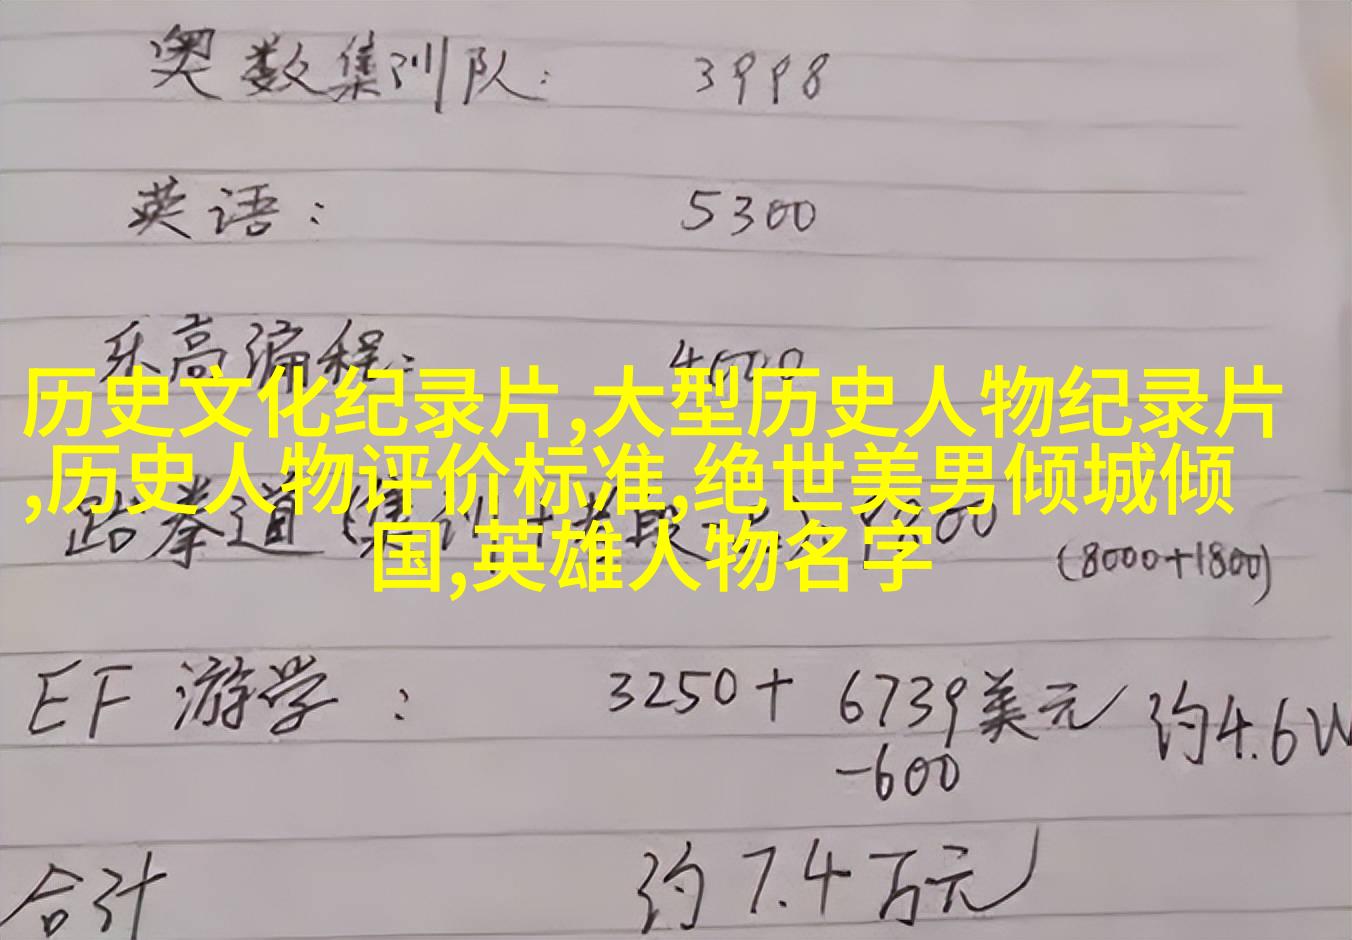 奥数集训队: 3998
英语: 5300
乐高编程:
历史文化纪录片,大型历史人物纪录片
,历史人物评价标准,绝世美男倾城倾
国,英雄人物名字
跆拳道
(8000+1800)
EF 游学: 3250+ 6739美元 约4.6W
-600
合计 约7.4万元